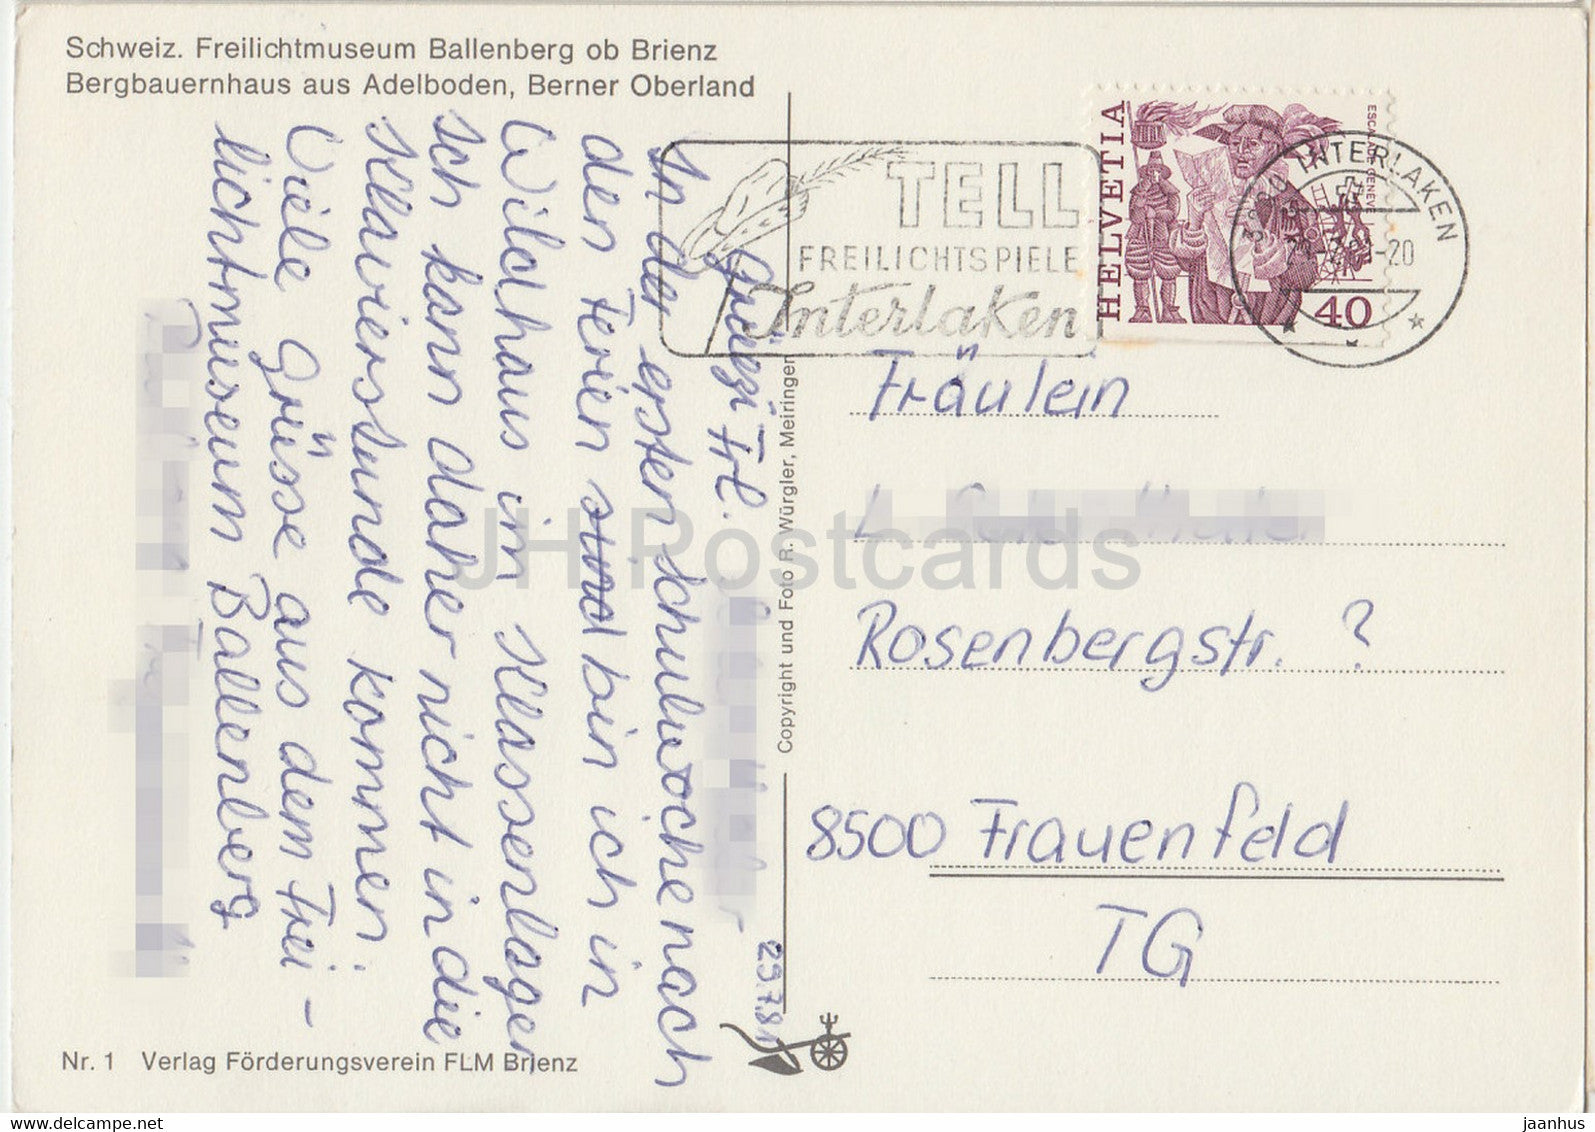 Schweiz. Freilichtmuseum Ballenberg ob Brienz
Bergbauernhaus aus Adelboden, Berner Oberland
TELL
FREILICHTSPIELE
Interlaken
HELVETIA
ESCALADE GENÈVE
40
INTERLAKEN
29.7.81
Grüezi Frl.
In der ersten Schulwoche nach
den Ferien sind bin ich in
Wildhaus im Klassenlager
Ich kann daher nicht in die
Klavierstunde kommen.
Viele Grüsse aus dem Frei-
lichtmuseum Ballenberg
Copyright und Foto R. Würgler, Meiringen
Fräulein
Rosenbergstr. ?
8500 Frauenfeld
TG
Nr. 1 Verlag Förderungsverein FLM Brienz
JH Postcards
www.delcampe.net
jaanhus